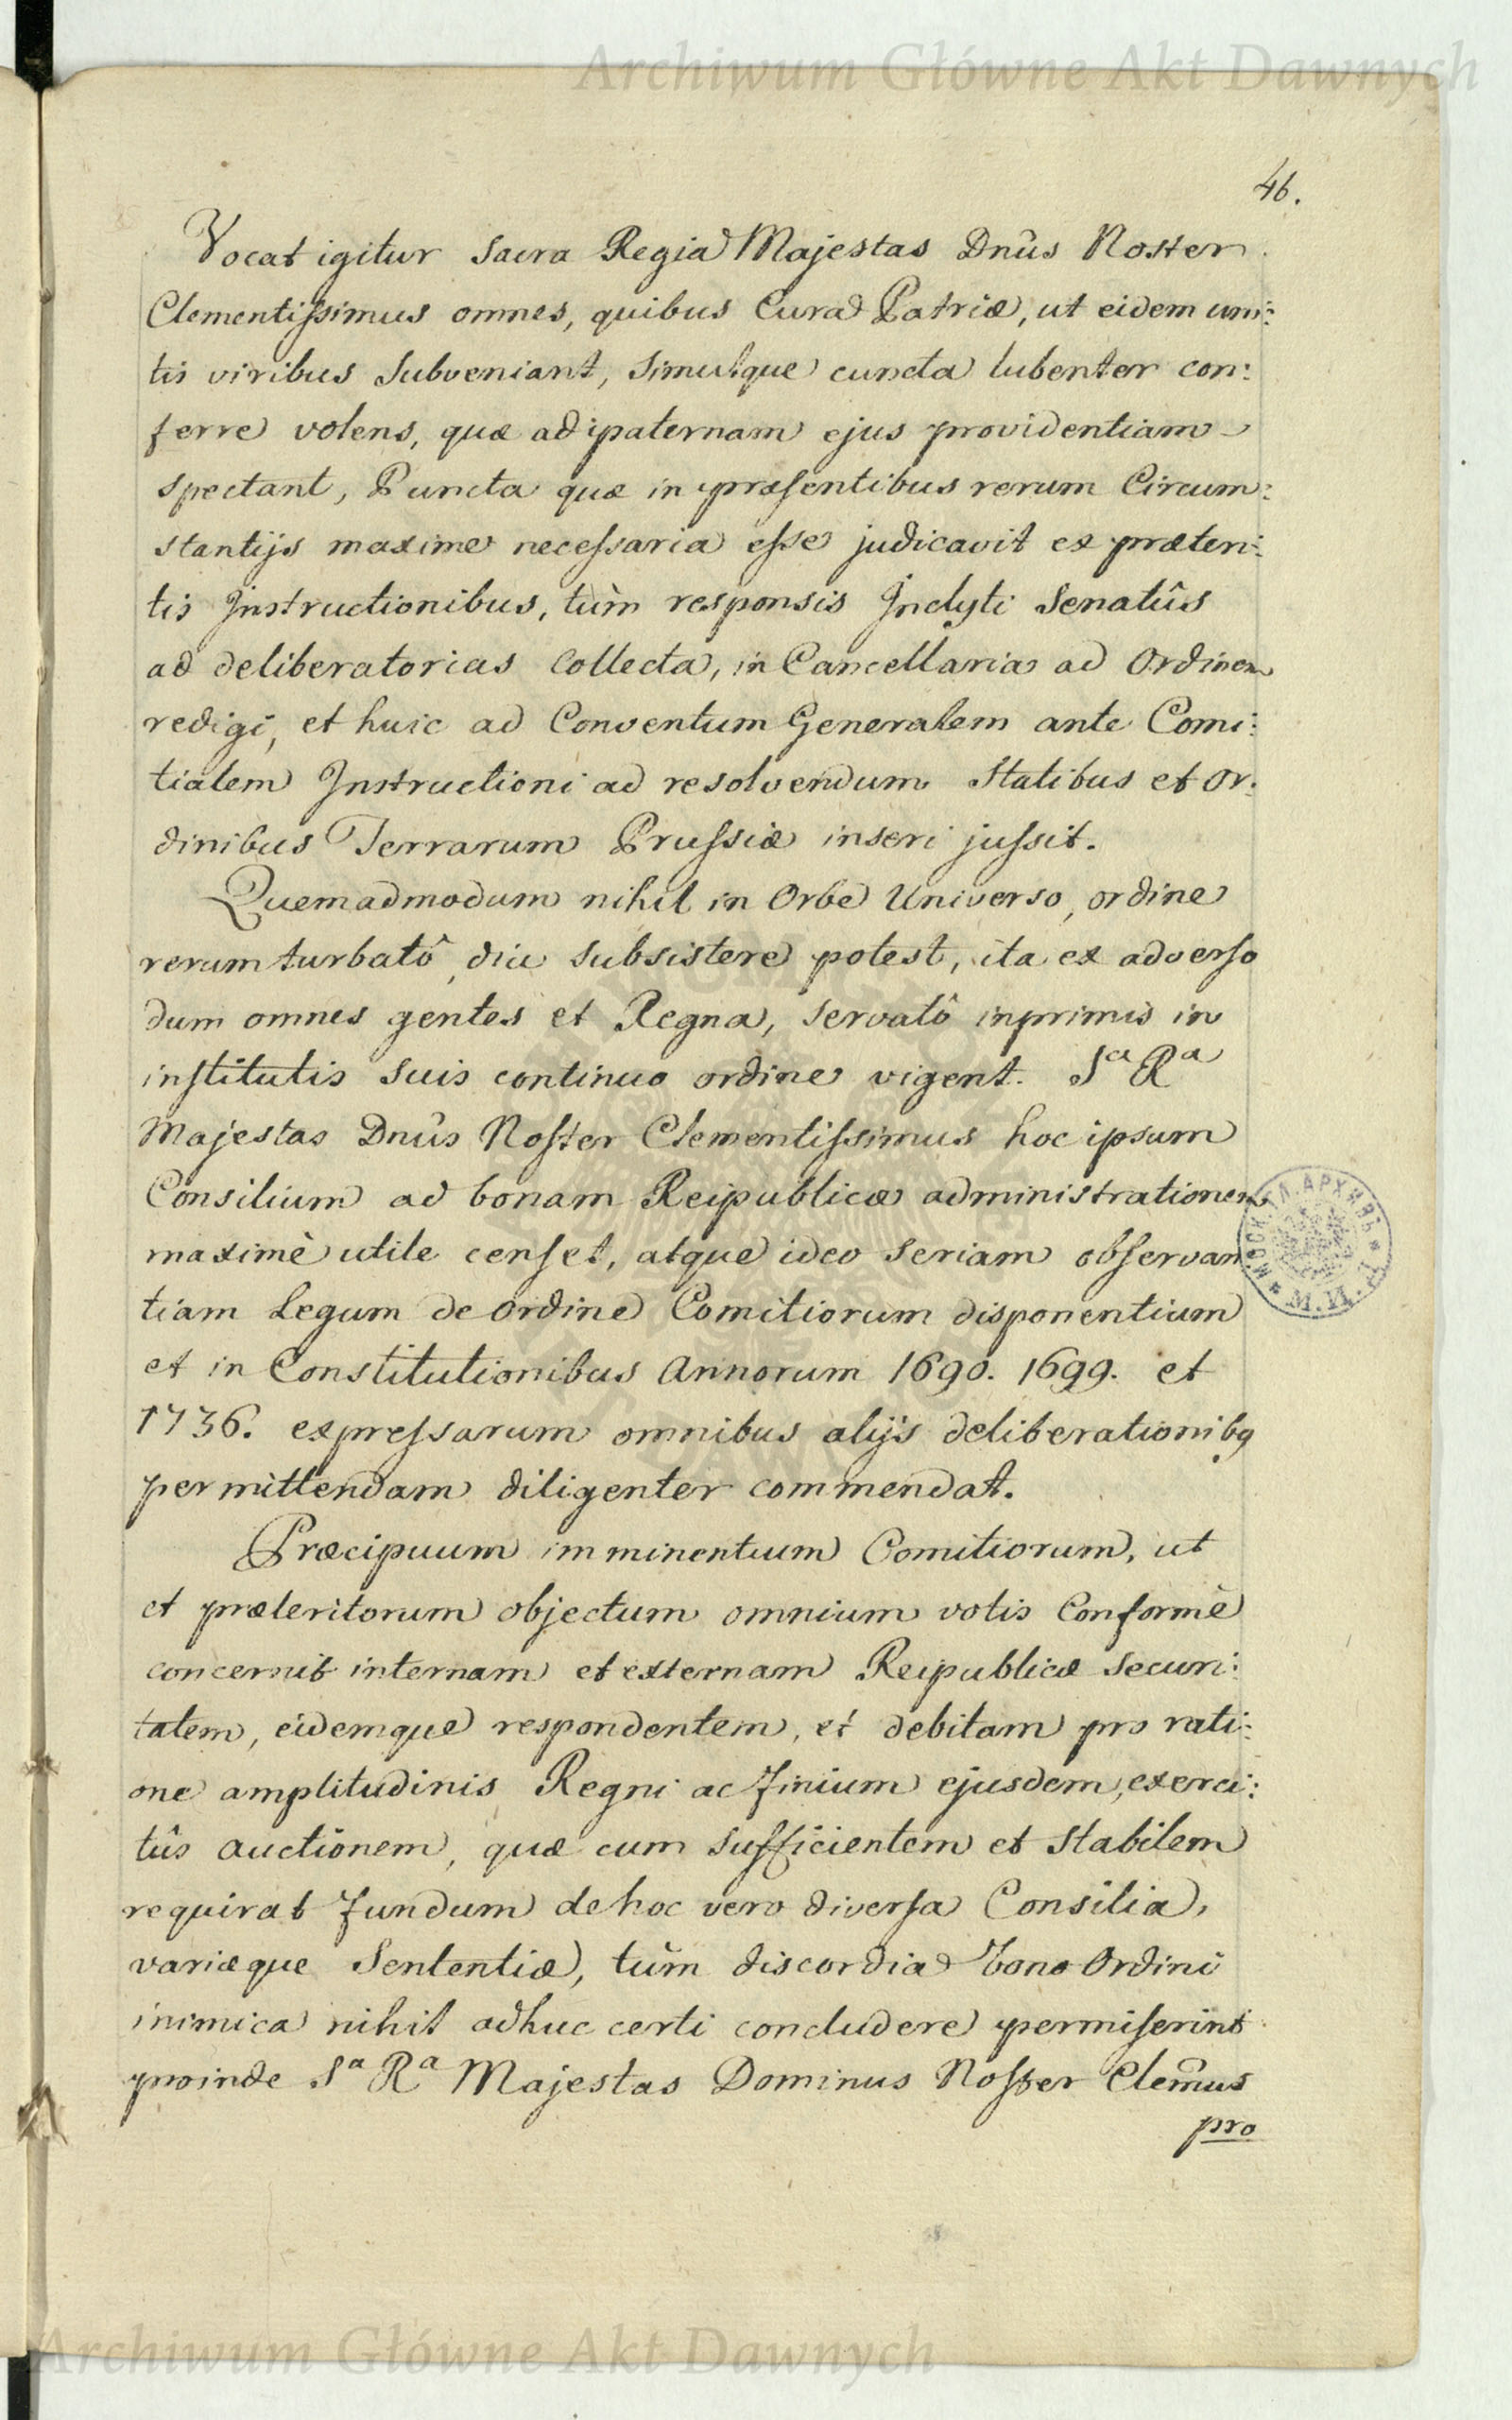 Archiwum Główne Akt Dawnych
46.
Vocat igitur Sacra Regia Majestas Dnûs Noster
Clementissimus omnes, quibus Cura Patriæ, ut eidem uni:
tis viribus subveniant, simulque cuncta lubenter con:
ferre volens, quæ ad paternam ejus providentiam
spectant, Puncta quæ in præsentibus rerum Circum:
stantijs maxime necessaria esse judicavit ex præteri:
tis Instructionibus, tùm responsis Inclyti Senatûs
ad deliberatorias collecta, in Cancellaria ad Ordinem
redigi, et huic ad Conventum Generalem ante Comi:
tialem Instructioni ad resolvendum Statibus et Or:
dinibus Terrarum Prussiæ inseri jussit.
Quemadmodum nihil in Orbe Universo, ordine
rerum turbatô, diu subsistere potest, ita ex adverso
dum omnes gentes et Regna, servatô inprimis in
institutis suis continuo ordine vigent. Sa Ra
Majestas Dnûs Noster Clementissimus hoc ipsum
Consilium ad bonam Reipublicæ administrationem
maximè utile censet, atque ideo seriam observan
tiam Legum de Ordine Comitiorum disponentium
et in Constitutionibus Annorum 1690. 1699. et
1736. expressarum omnibus alijs deliberationibq
permittendam diligenter commendat.
Præcipuum imminentium Comitiorum, ut
et præteritorum objectum omnium votis Conformè
concernit internam et externam Reipublicæ securi:
tatem, eidemque respondentem, et debitam pro rati:
one amplitudinis Regni ac finium ejusdem, exerci:
tûs auctionem, quæ cum sufficientem et stabilem
requirat fundum de hoc vero diversa Consilia,
variæque Sententiæ, tùm discordia bono Ordini
inimica nihil adhuc certi concludere permiserint
proinde Sa Ra Majestas Dominus Noster Clemus
pro
Archiwum Główne Akt Dawnych